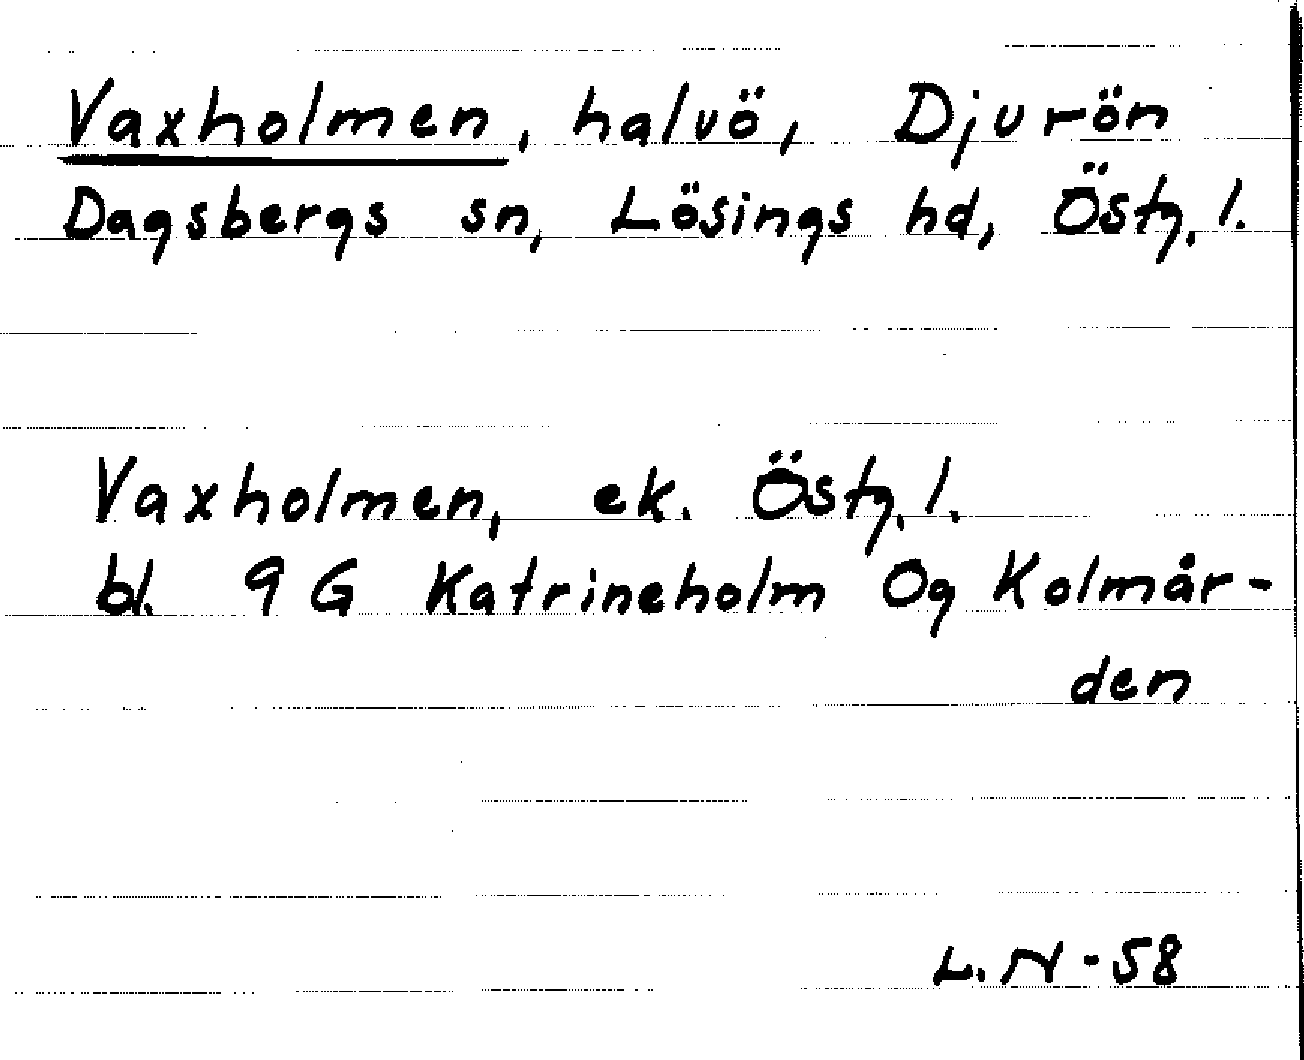 Vaxholmen, halvö, Djurön
Dagsbergs sn, Lösings hd, Östg. l.
Vaxholmen, ek. Östg. l.
bl. 9 G Katrineholm Og Kolmår-
den
L. N - 58